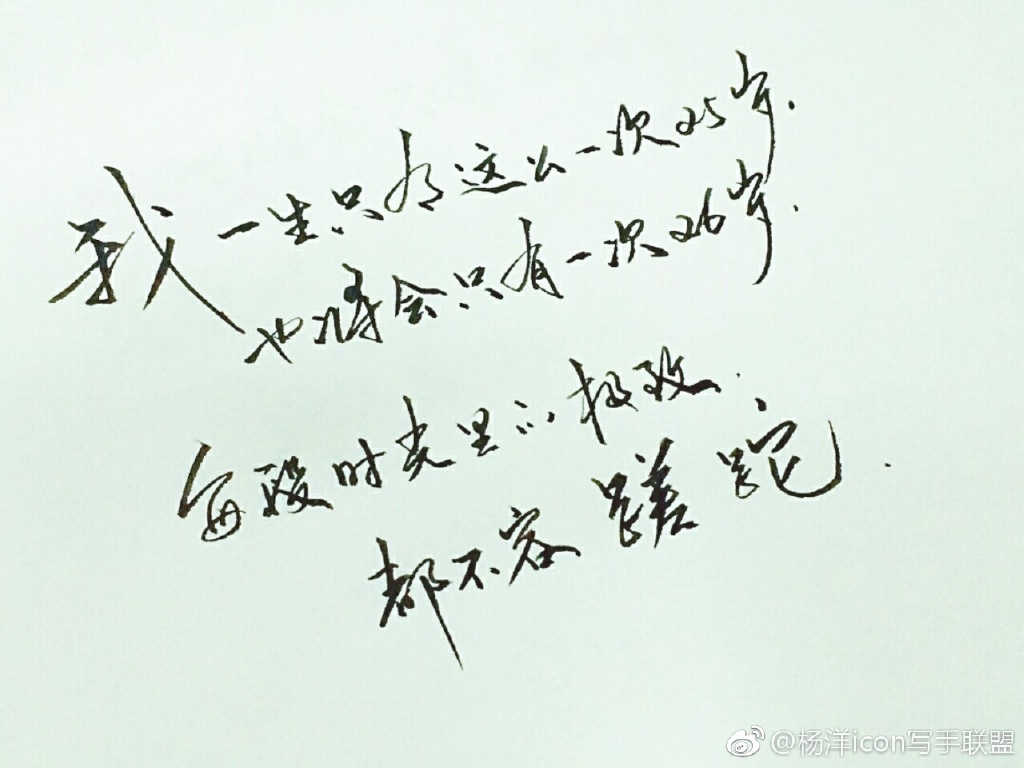 我一生只有这么一次25岁.
也将会只有一次26岁.
每段时光里的极致.
都不容蹉跎.
@杨洋icon写手联盟